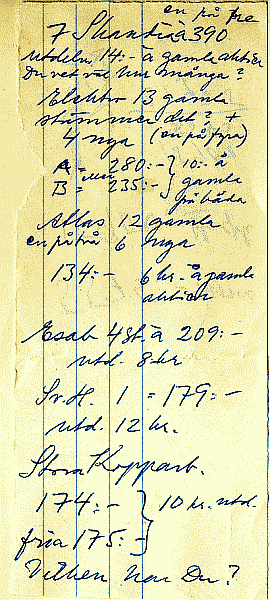 en på tre
7 Skantiá 390
Utdeln. 14:- á gamla aktier
Du vet väl hur många?
Elektro 13 gamla
stämmer det? +
4 nya (en på fyra)
A = 280:- } 10:- å
B = 235:- } gamla
på båda
Atlas 12 gamla
en på två 6 nya
134:- 6 kr. å gamla
aktier
Esab 4 st. á 209:-
utd. 8 kr
Sv.H. 1 = 179:-
utd. 12 kr.
Stora Kopparb.
174:- } 10 kr. utd.
fria 175:- }
Vilken har Du?